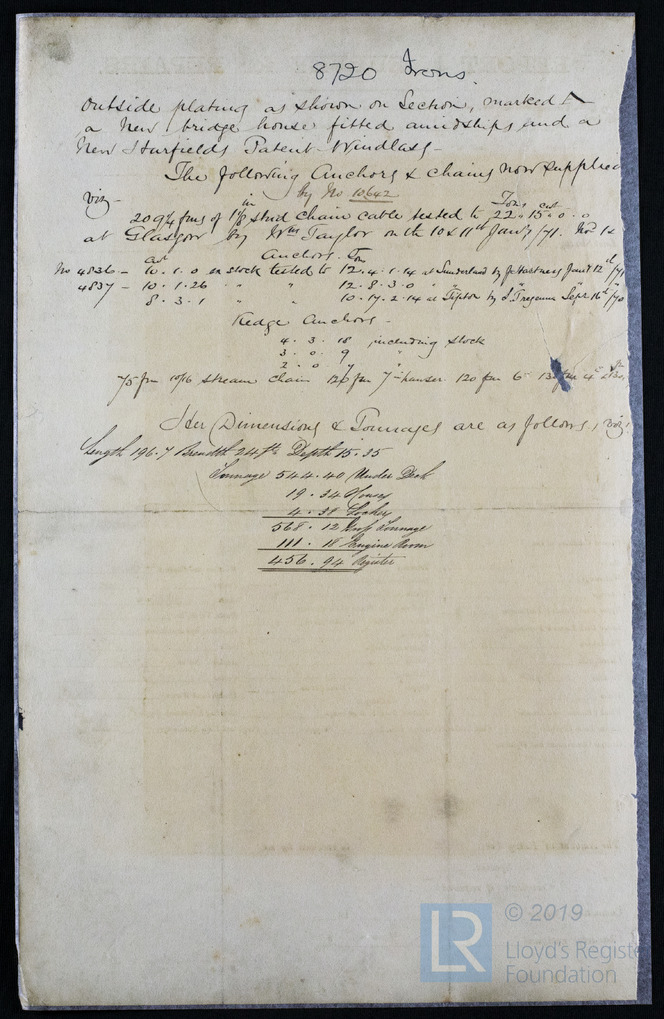 8720 Irons.
outside plating as shown on Section, marked
a New bridge house fitted amidships and a
New Harfields Patent Windlass -
The following Anchors & chains now supplied
viz - by No 10642
in Tons cwt
209¼ fms of 1⅛ stud chain cable tested to 22 " 15 " 0 " 0
at Glasgow by Wm Taylor on the 10 & 11th Jany /71.
cwt Anchors. Ton
No 4836 - 10. 1. 0 ex stock tested to 12. 4. 1. 14 at Sunderland by J Hartness Jany 12th /71
4837 - 10. 1. 26 " " 12. 8. 3. 0 " " "
8. 3. 1 " " 10. 17. 2. 14 at Tipton by Sepr 16th /70
Kedge Anchors -
4. 3. 18 including stock
3. 0. 9 "
2. 0. "
75 fm 10/16 stream chain 120 fm 7 in hawser 120 fm 6
Her Dimensions & Tonnages are as follows, viz:
Length 196.7 Breadth Depth 15.35
Tonnage 544.40 Under Deck
19.34
4.38
568.12 Gross Tonnage
111.18 Engine Room
456.94 Register
LR
© 2019
Lloyd's Registe
Foundation